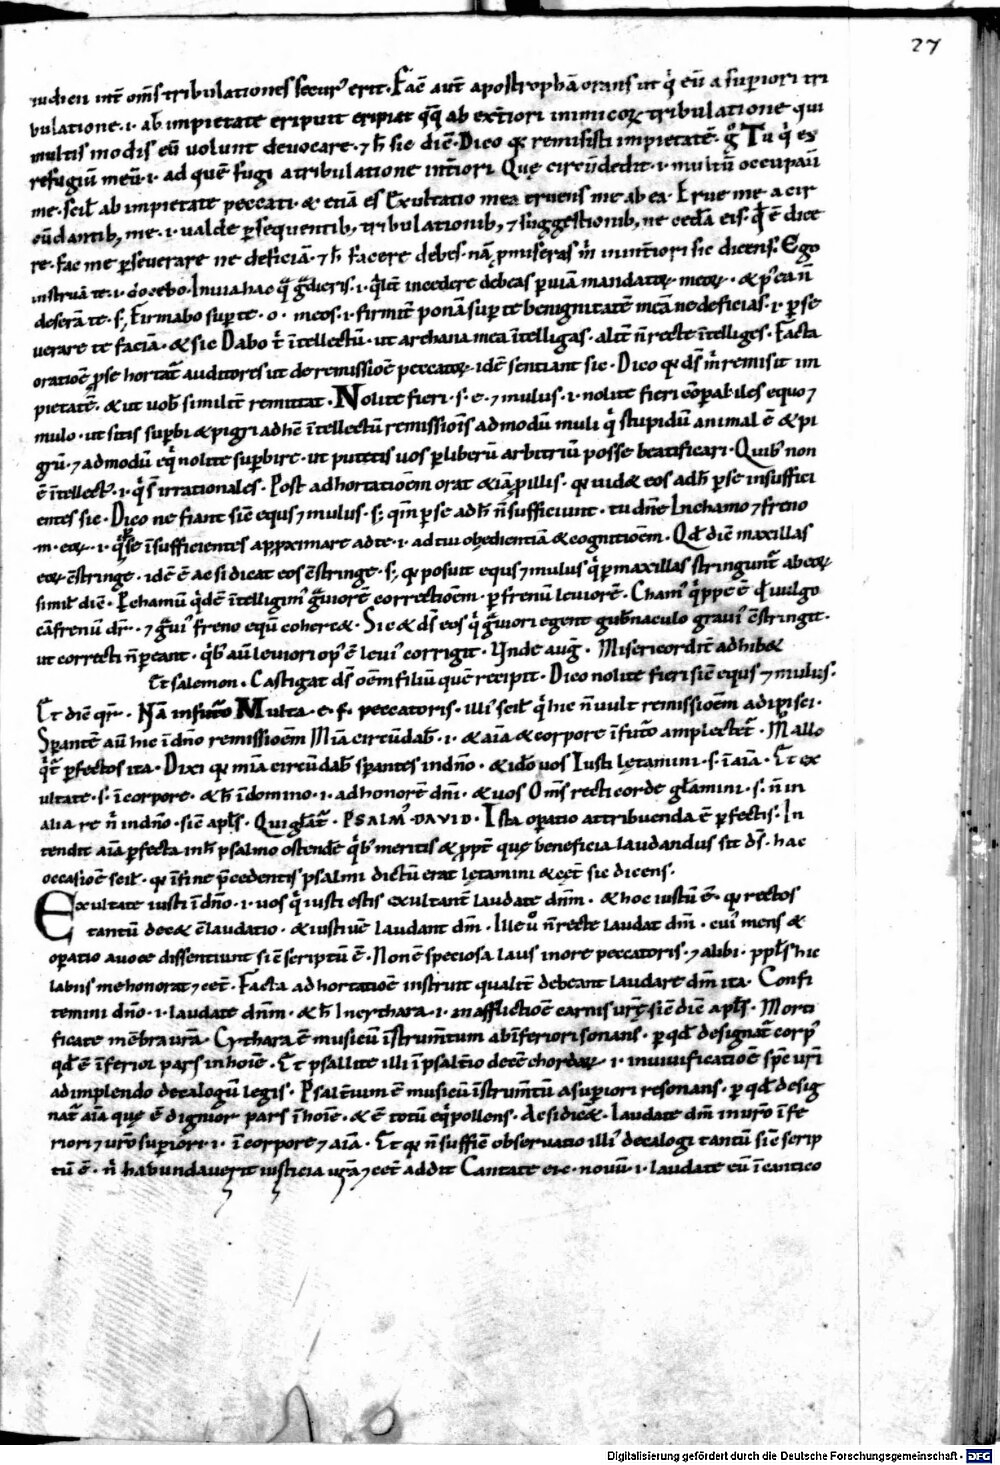 27
iudicii int̄ om̄s tribulationes secur᾽ erit. Fac̄ aut̄ apostropham orans ut q̇ eū a superiori tri
bulatione .i. ab impietate eripuit eripiat q̄q̄ ab ext̄iori inimicoꝝ tribulatione qui
multis modis eū uolunt deuocare. ⁊ h̄ sic dic̄. Dico qꝛ remisisti impietatē. g̊ Tu q̇ es
refugiū meū .i. ad quē fugi a tribulatione int̄iori Quę circūdedit .i. multū occupauit
me. scil̄ ab impietate peccati. & etiā es Exultatio mea eruens me ab ea. Erue me a cir
cūdantib; me .i. ualde ꝑsequentib; tribulationib; ⁊ suggestionib; ne cedā eis. qd̄ ē dice
re. Fac me ꝑseuerare ne deficiā. ⁊ h̄ facere debes. nā ꝓmiseras m̄ in int̄iori sic dicens. Ego
instruā te .i. docebo. In uia hac q̄ ḡdieris .i. q̄lit̄ incedere debeas ꝑ uiam mandatoꝝ meoꝝ. & p᾽ea n̄
deserā te. s; Firmabo sup̱ te .o. meos .i. firmit̄ ponā sup̱ te benignitatē meā ne deficias .i. ꝑse
uerare te faciā. & sic Dabo t̄ intellectū. ut archana mea intelligas. alit̄ n̄ recte intelliges. Facta
oratiōe ꝑ se hortat᾽ auditores ut de remissiōe peccatoꝝ idē sentiant sic. Dico qꝛ ds̄ m̄ remisit im
pietatē. & ut uob̄ similit̄ remittat. Nolite fieri .s. e. ⁊ mulus .i. nolite fieri cōparabiles equo ⁊
mulo. ut sitis sup̱bi & pigri ad hc̄ intellectū remissiōis ad modū muli q̇ stupidū animal ē & pi
grū. ⁊ ad modū eq̇ nolite sup̱bire. ut putetis uos ꝑ liberū arbitriū posse beatificari. Quib᾽ non
ē intellect᾽ .i. q̇ s̄t irrationales. Post adhortatiōem orat & iā ꝓ illis. qꝛ uid& eos ad h̄ ꝑ se insuffici
entes sic. Dico ne fiant sic̄ equs ⁊ mulus. s; qm̄ ꝑ se ad h̄ n̄ sufficiunt. tu dn̄e In chamo ⁊ freno
.m. eoꝝ .i. q̇ ꝑ se insufficientes approximare ad te .i. ad tui obedientiā & cognitiōem. Qd̄ dic̄ maxillas
eoꝝ c̄stringe. idē ē ac si dicat eos c̄stringe. s; qꝛ posuit equs ⁊ mulus q̇ ꝑ maxillas stringunt᾽ ab eoꝝ
simil̄ dic̄. Per hamū q̇dē intelligim᾽ g̃uiorē correctiōem. ꝑ frenū leuiorē. Cham᾽ q̇ppe ē qd̄ uulgo
cāfrenū dr̄. ⁊ g̃ui᾽ freno equū coherc&. Sic & ds̄ eos q̇ g̃uiori egent gub̄naculo graui᾽ c̄stringit.
ut correcti n̄ ꝑeant. q̇b᾽ aū leuiori op᾽ ē leui᾽ corrigit. Unde aug̃. Misericordit̄ adhib&
Et salemon. Castigat ds̄ om̄em filiū quē recipit. Dico nolite fieri sic̄ equs ⁊ mulus.
Et dic̄ qr̄. Nā in futuro Multa .e. f. peccatoris. illi᾽ scil̄ q̇ hic n̄ uult remissiōem adipisci.
Sꝑantē aū hic in dn̄o remissiōem Mīa circūdab̄ .i. & aīa & corpore in futuro amplectet᾽.
q̇t᾽ ꝑfectos ita. Dixi qꝛ mīa circūdab̄ sꝑantes in dn̄o. & ido̊ uos Iusti lętamini .s. in aīa. Et ex
ultate .s. in corpore. & h̄ in domino .i. ad honorē dn̄i. & uos Om̄s recti corde gl̄amini .s. n̄ in
alia re n̄ in dn̄o. sic̄ apl̄s. Qui gl̄at᾽. PSALM᾽ DAVID. Ista oꝑatio attribuenda ē ꝑfectis. In
tendit aīa ꝑfecta in h̄ psalmo ostendē q̇b᾽ meritis & ꝓpt̄ quę beneficia laudandus sit ds̄. hac
occasiōe scil̄. qꝛ in fine p̄cedentis psalmi dictū erat lętamini & cet̄ sic dicens.
Exultate iusti in dn̄o .i. uos q̇ iusti estis exultant̄ laudate dn̄m. & hoc iustū ē. qꝛ rectos
tantū dec& c̄laudatio. & iusti uē laudant dn̄m. Ille u̇o n̄ recte laudat dn̄m. cui᾽ mens &
oꝑatio a uoce dissentiunt sic̄ scriptū ē. Non ē speciosa laus in ore peccatoris. ⁊ alibi. ppl̄s hic
labiis me honorat ⁊ cet̄. Facta adhortatiōe instruit qualit̄ debeant laudare dn̄m ita. Confi
temini dn̄o .i. laudate dn̄m. & h̄ In cythara .i. in afflictiōe carnis urę sic̄ dic̄ apl̄s. Morti
ficate mēbra ur̄a. Cythara ē musicū instrum̄tum ab inferiori sonans. ꝑ qd̄ designat᾽ corp᾽
qd̄ ē inferior pars in hoīe. Et psallite illi in psalt̄io decē chordaꝝ .i. in uiuificatiōe sp̄c ur̄i
adimplendo decalogū legis. Psalt̄ium ē musicū instrum̄tū a sup̱iori resonans. ꝑ qd̄ desig
nat᾽ aīa quę ē dignior pars in hoīe. & ē totū eq̇pollens. Ac si dic&. laudate dn̄m in ur̄o infe
riori ⁊ ur̄o sup̱iori .i. in corpore ⁊ aīa. Et qꝛ n̄ suffic̄ obseruatio illi᾽ decalogi tantū sic̄ scrip
tū ē. n̄ habundauerit iusticia ur̄a ⁊ cet̄ addit Cantate ei c. nouū .i. laudate eū in cantico
Digitalisierung gefördert durch die Deutsche Forschungsgemeinschaft - DFG